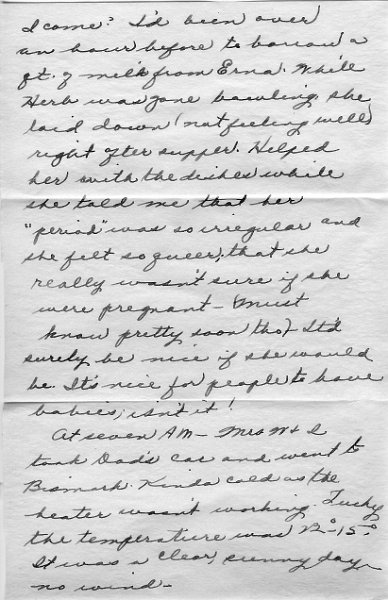 I come? I'd been over
an hour before to borrow a
qt. of milk from Erna. While
Herb was gone bowling she
laid down (not feeling well)
right after supper. Helped
her with the dishes while
she told me that her
"period" was so irregular and
she felt so queer, that she
really wasn't sure if she
were pregnant - (must
know pretty soon tho) - It'd
surely be nice if she would
be. It's nice for people to have
babies, isn't it!
At seven AM - Mrs W & I
took Dad's car and went to
Bismark. Kinda cold as the
heater wasn't working. Lucky
the temperature was 12°-15°
It was a clear, sunny day
no wind -